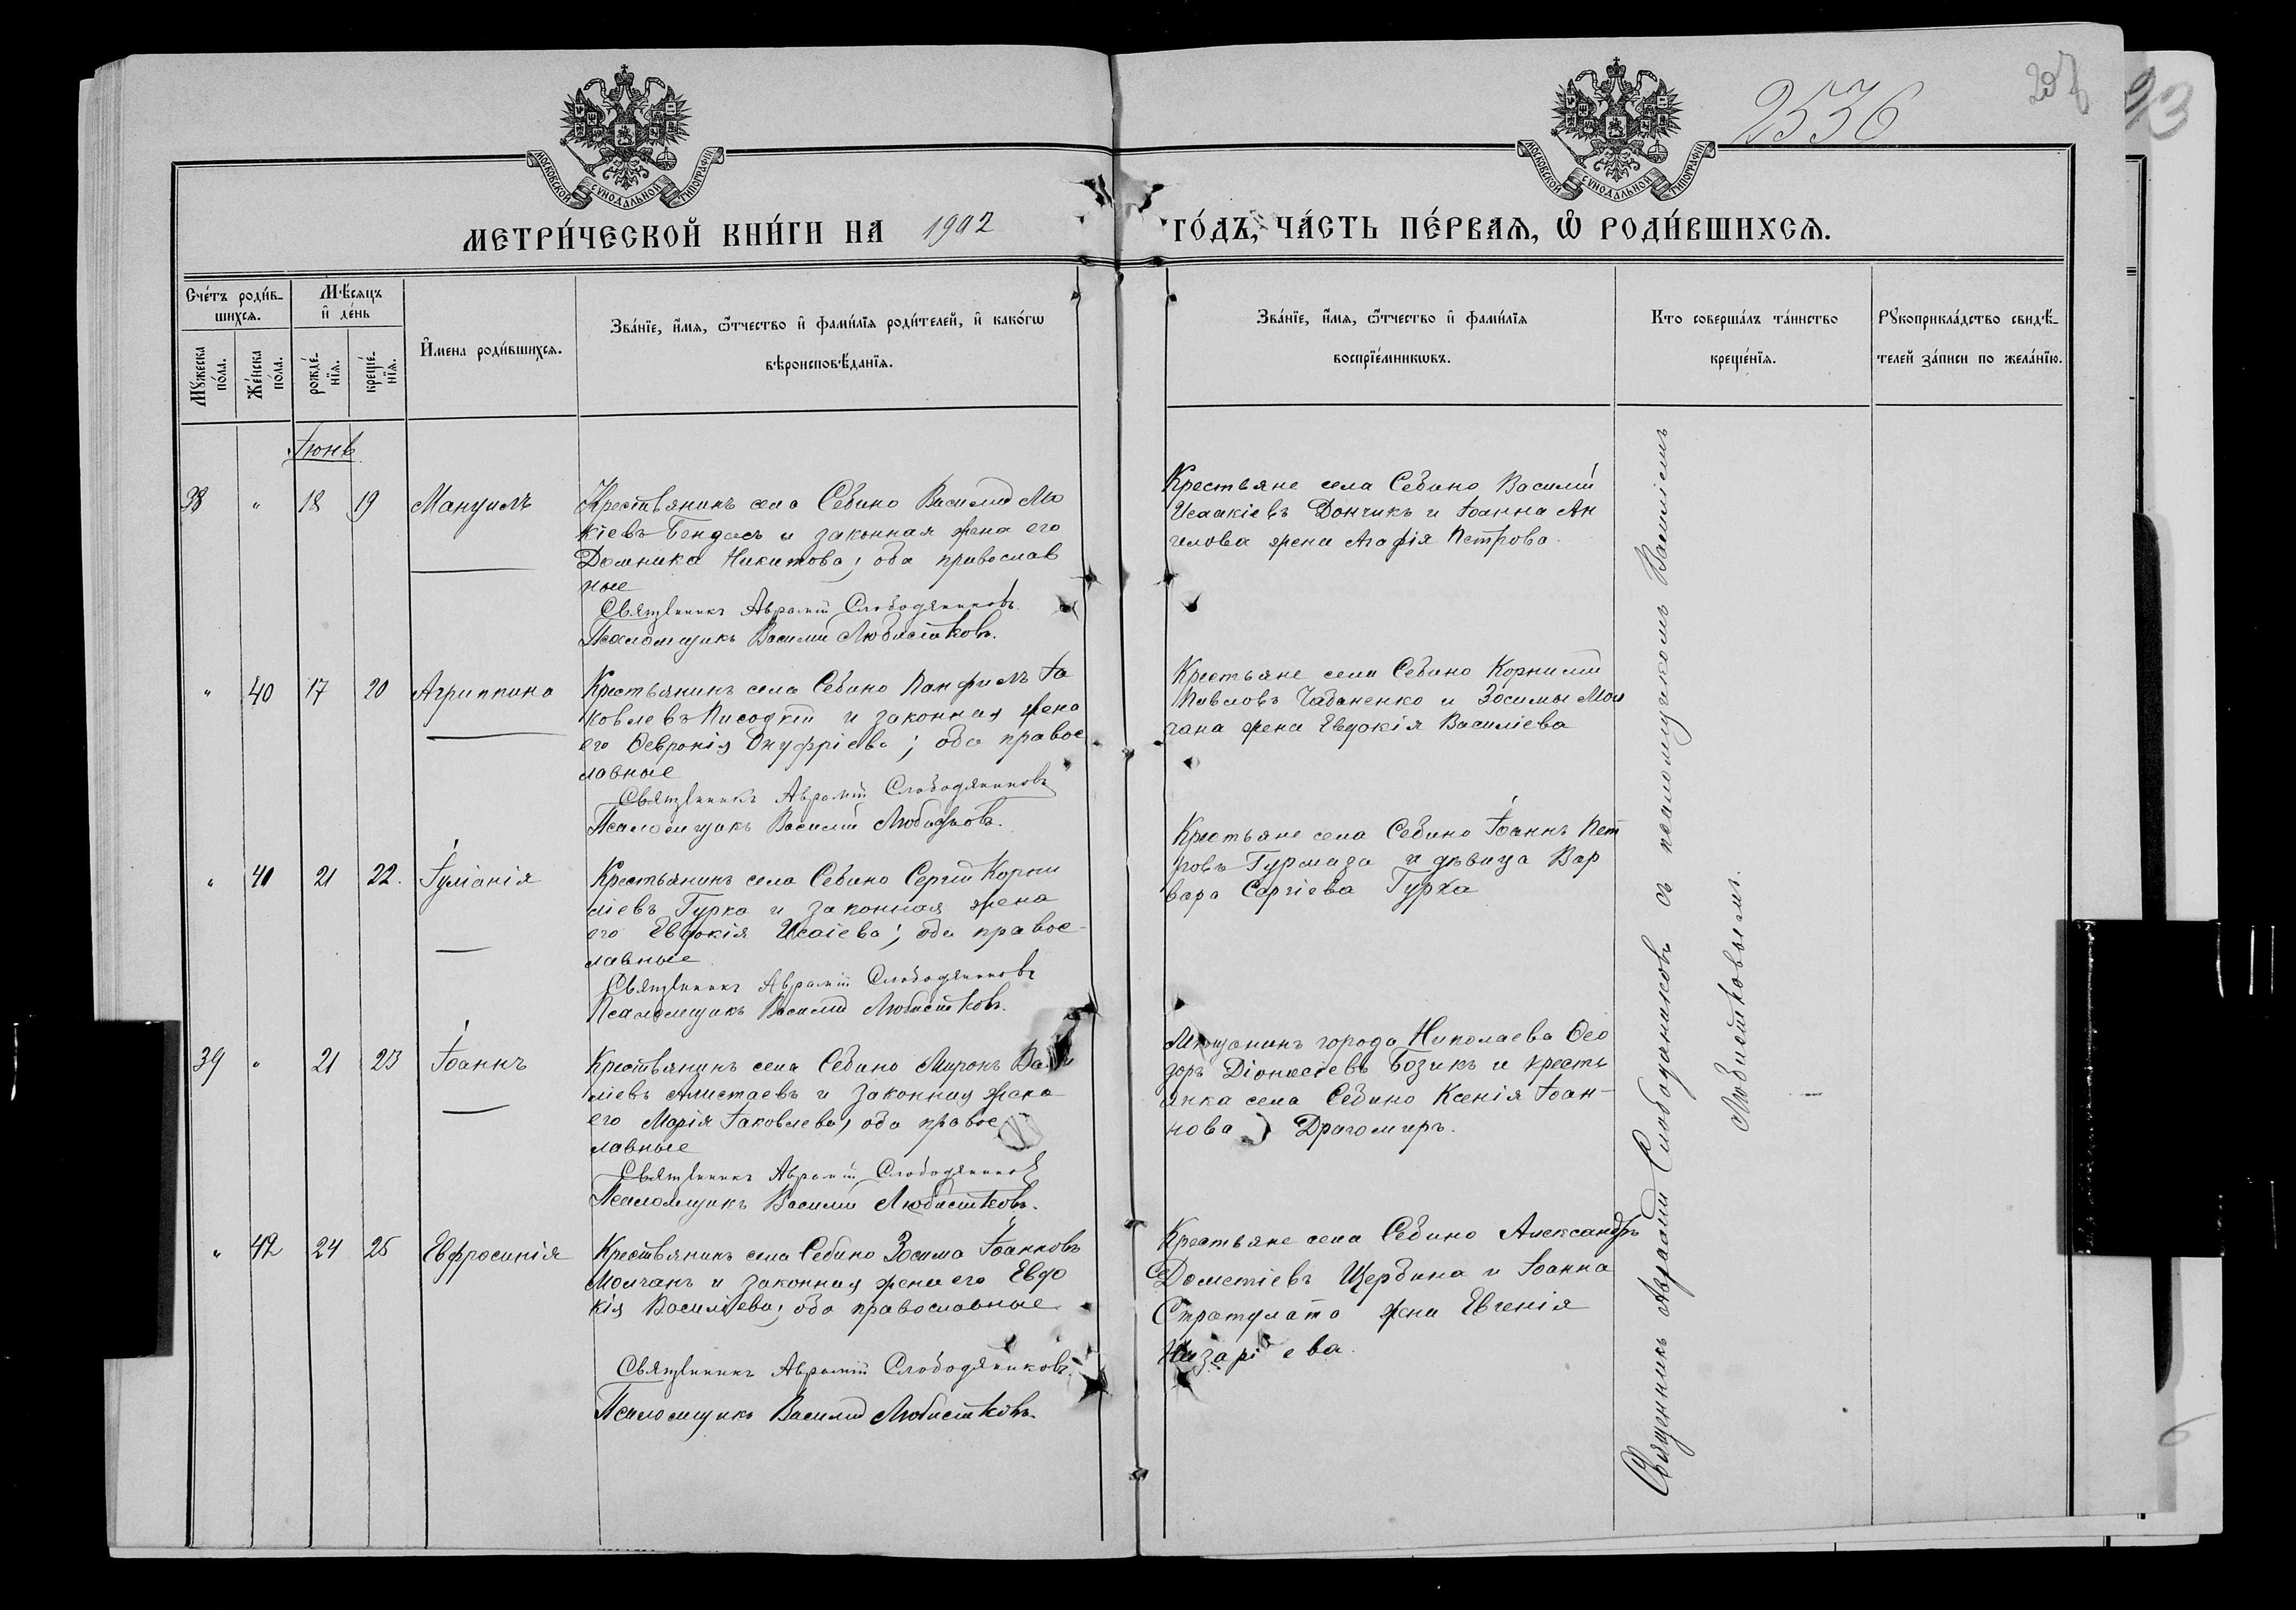 2536
207
93
МОСКОВСКОЙ СУНОДАЛЬНОЙ ТИПОГРАФІИ
МОСКОВСКОЙ СУНОДАЛЬНОЙ ТИПОГРАФІИ
МЕТРИ́ЧЕСКОЙ КНИ́ГИ НА 1902 ГО́ДЪ, ЧА́СТЬ ПЕ́РВАЯ, Ѡ҆ РОДИ́ВШИХСЯ.
Сче́тъ роди́в-
шихся.
Мꙋжеска по́ла.
Же́нска по́ла.
Мѣ́сяцъ
и҆ де́нь
рожде́-
нїя.
креще́-
нїя.
И҆мена роди́вшихся.
Зва́нїе, и҆́мя, ѻ҆́тчество и҆ фами́лїя роди́телей, и҆ како́гѡ
вѣроисповѣ́данїя.
Зва́нїе, и҆́мя, ѻ҆́тчество и҆ фами́лїя
воспрїе́мникѡвъ.
Кто соверша́лъ та́инство
креще́нїя.
Рꙋкоприкла́дство свидѣ́-
телей за́писи по жела́нїю.
Іюнь
38 " 18 19 Мануилъ
Крестьянинъ села Себино Василій Мо
кіевъ Бендасъ и законная жена его
Домника Никитова; оба православ
ные
Священникъ Аврамій Слободяниковъ
Псаломщикъ Василій Любистковъ.
Крестьяне села Себино Василій
Исаакіевъ Дончикъ и Іоанна Ан
гелова жена Агафія Петрова.
" 40 17 20 Агриппина
Крестьянинъ села Себино Панфилъ Іа
ковлевъ Писоцкій и законная жена
его Февронія Онуфріева; оба правос
лавные
Священникъ Аврамій Слободяниковъ
Псаломщикъ Василій Любистковъ.
Крестьяне села Себино Корнилій
Павловъ Чабаненко и Зосимы Мол
чана жена Евдокія Василіева
" 41 21 22. Іуліанія
Крестьянинъ села Себино Сергій Корни
ліевъ Гурка и законная жена
его Евдокія Исаіева; оба правос-
лавные
Священникъ Аврамій Слободяниковъ
Псаломщикъ Василій Любистковъ.
Крестьяне села Себино Іоаннъ Пет
ровъ Гурмаза и дѣвица Вар
вара Сергіева Гурка
39 " 21 23 Іоаннъ
Крестьянинъ села Себино Миронъ Васи
ліевъ Алистаевъ и законная жена
его Марія Іаковлева, оба правос
лавные
Священникъ Аврамій Слободяниковъ
Псаломщикъ Василій Любистковъ.
Мѣщанинъ города Николаева Ѳео
доръ Діонисіевъ Бозикъ и кресть
янка села Себино Ксенія Іоан-
нова Драгомиръ.
" 42 24 25 Евфросинія
Крестьянинъ села Себино Зосима Іоанновъ
Молчанъ и законная жена его Евдо
кія Василіева, оба православные
Священникъ Аврамій Слободяниковъ.
Псаломщикъ Василій Любистковъ.
Крестьяне села Себино Александръ
Дометіевъ Щербина и Іоанна
Стратулата жена Евгенія
Назаріева.
Священникъ Аврамій Слободяниковъ съ псаломщикомъ Василіемъ
Любистковымъ.
6